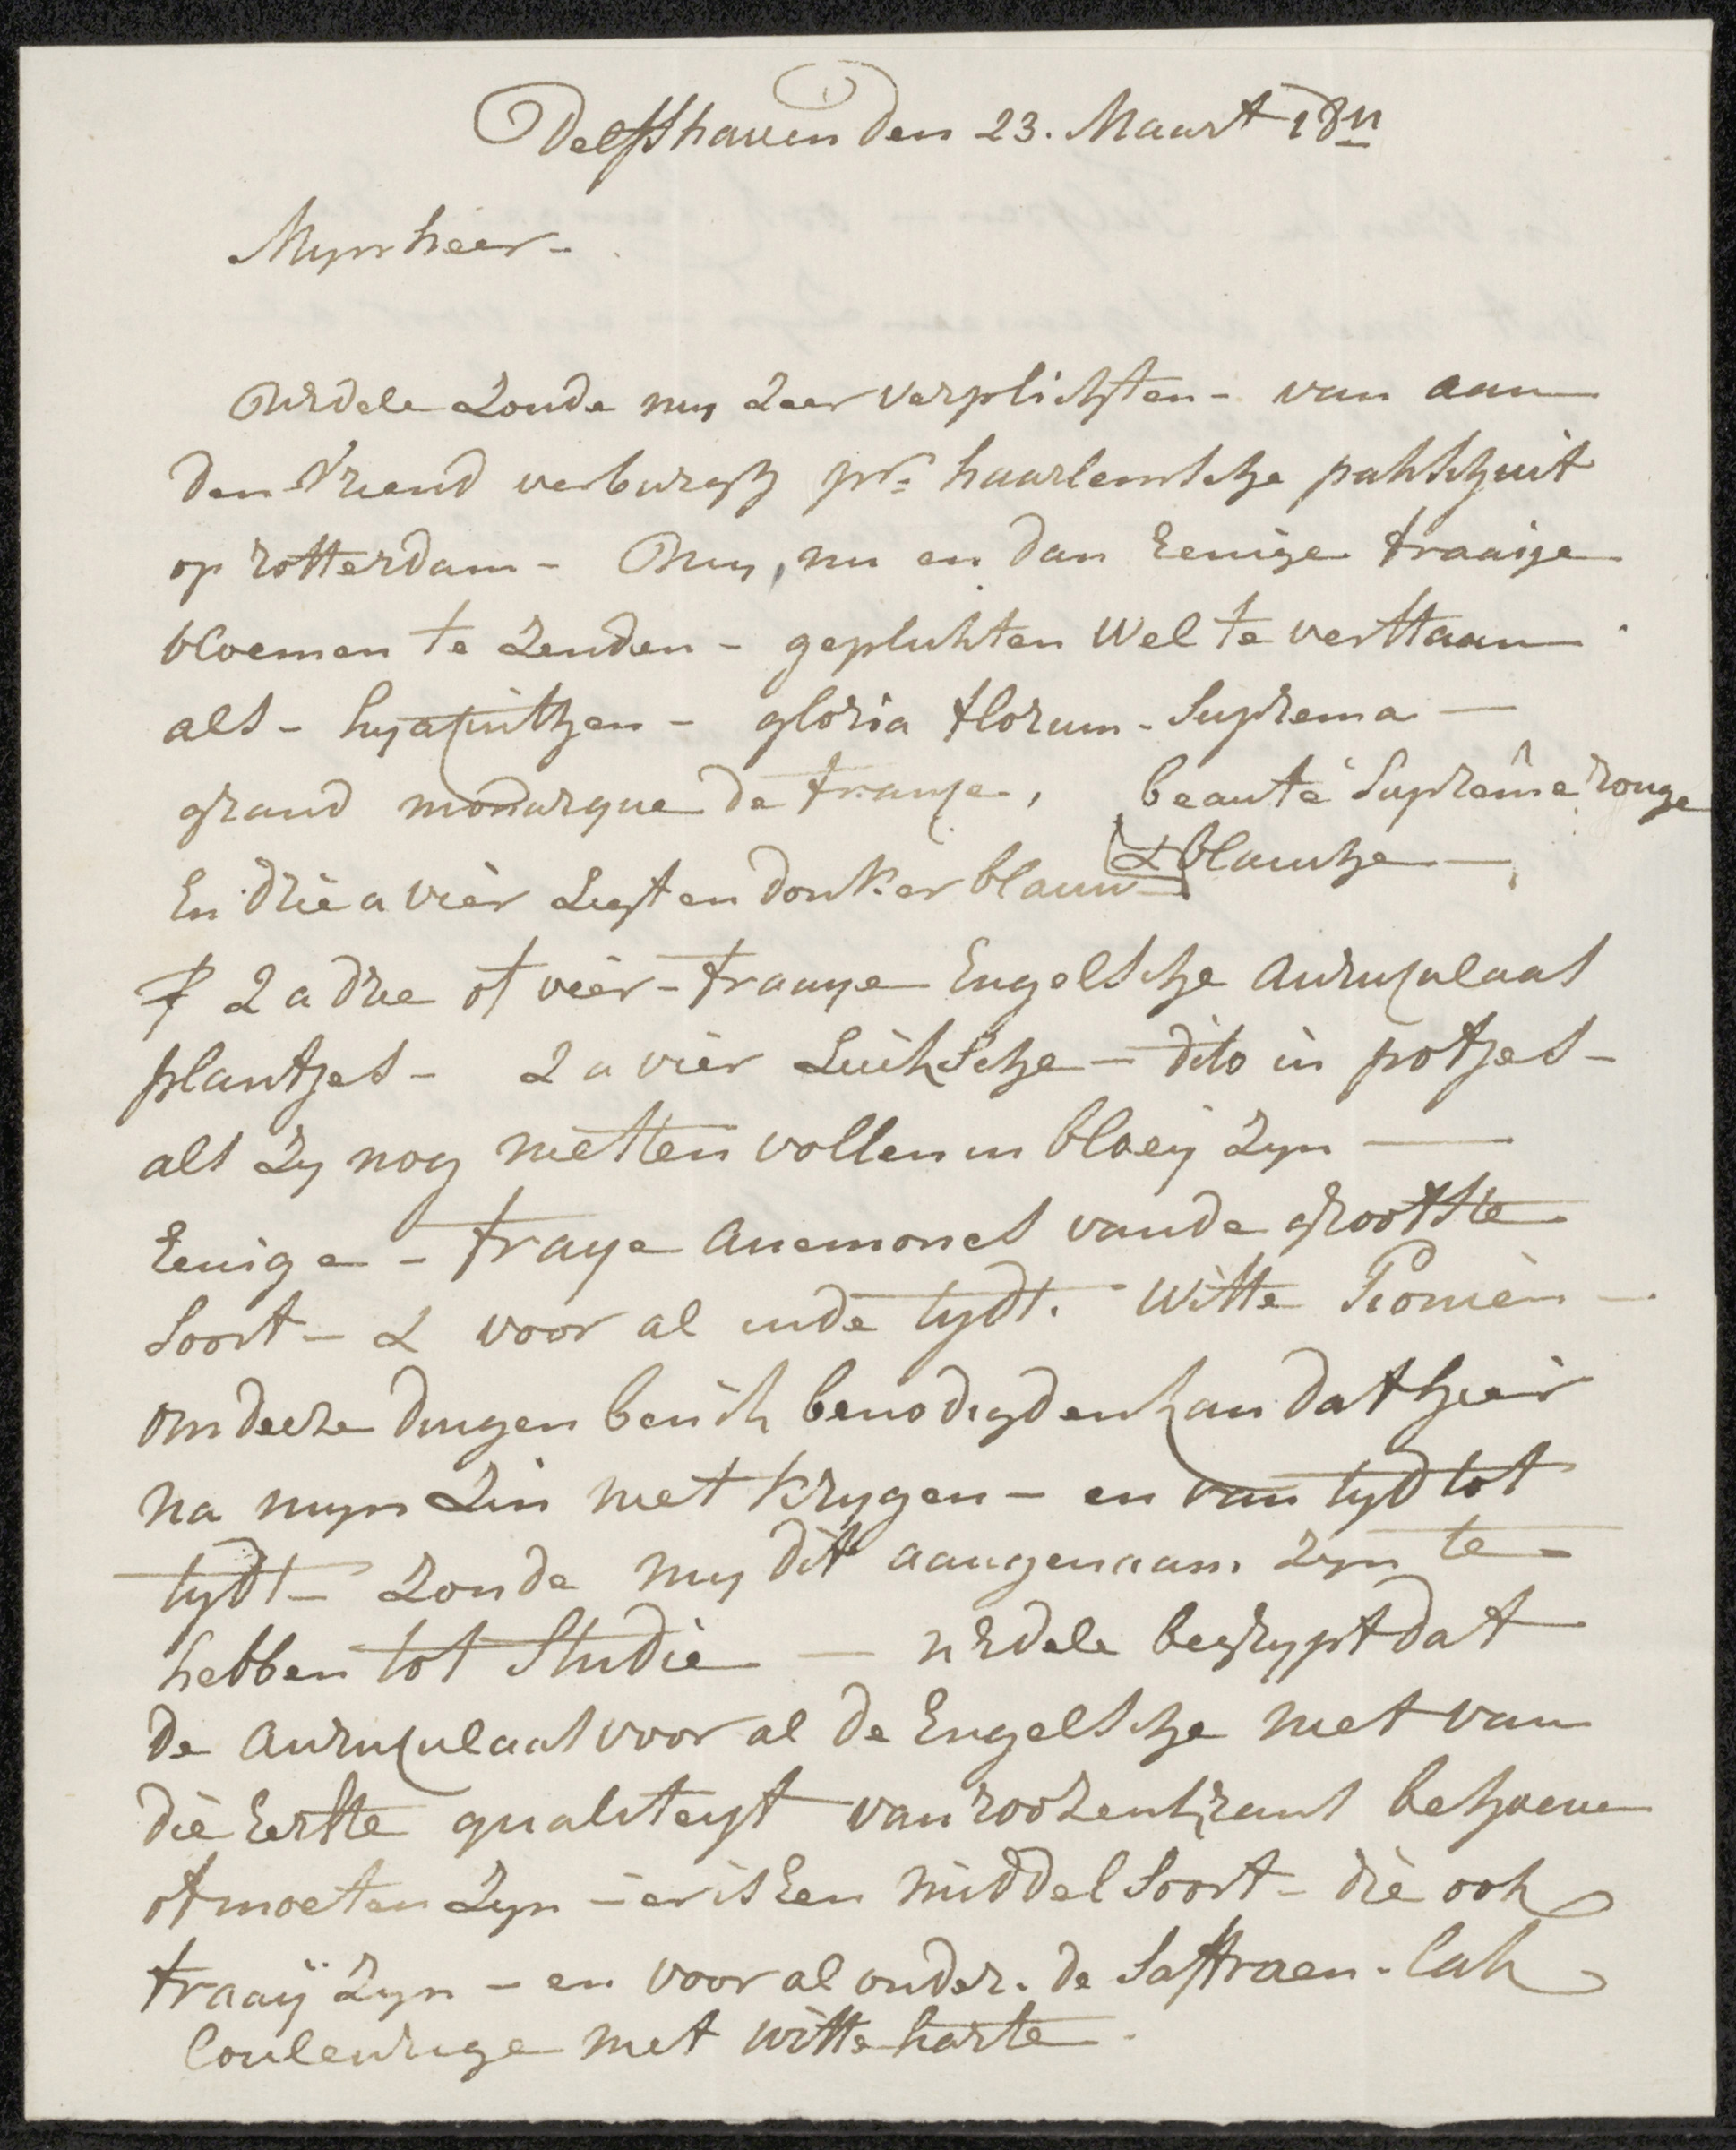 Delfshaven den 23. Maart 1811
Mynheer -
UEdele Zoude my Zeer verplichten - van aan
den vriend verburgh pr. haarlemsche pakschuit
op rotterdam - My, nu en dan Eenige fraaije
bloemen te Zenden - geplukten Wel te verstaan
als - hyacinthen - gloria florum - Suprema —
grand monarque de france, beauté Supréme rouge
& blanche —
En drie a vier Ligt en donker blauw
2 a drie of vier - fraaye Engelsche auriculaas
plantjes - 2 a vier Luiksche - dito in potjes -
als Zy nog niet ten vollen in bloey Zyn —
Eenige - fraye anemones van de grootste
Soort - & voor al in de tydt. Witte Pionien -
om deeze dingen ben ik benodigd en kan dat hier
na myn Zin niet krygen - en van tyd tot
tydt - Zoude my dit aangenaam Zyn te -
hebben tot Studie — uEdele begrypt dat
de auriculaas voor al de Engelsche niet van
die Eerste qualiteyt van roozenkrans behoeven
of moeten Zyn - er is Een middel Soort - die ook
fraaÿ Zyn - en voor al onder. de Saffraen - Lak
Couleurige met witte harte.